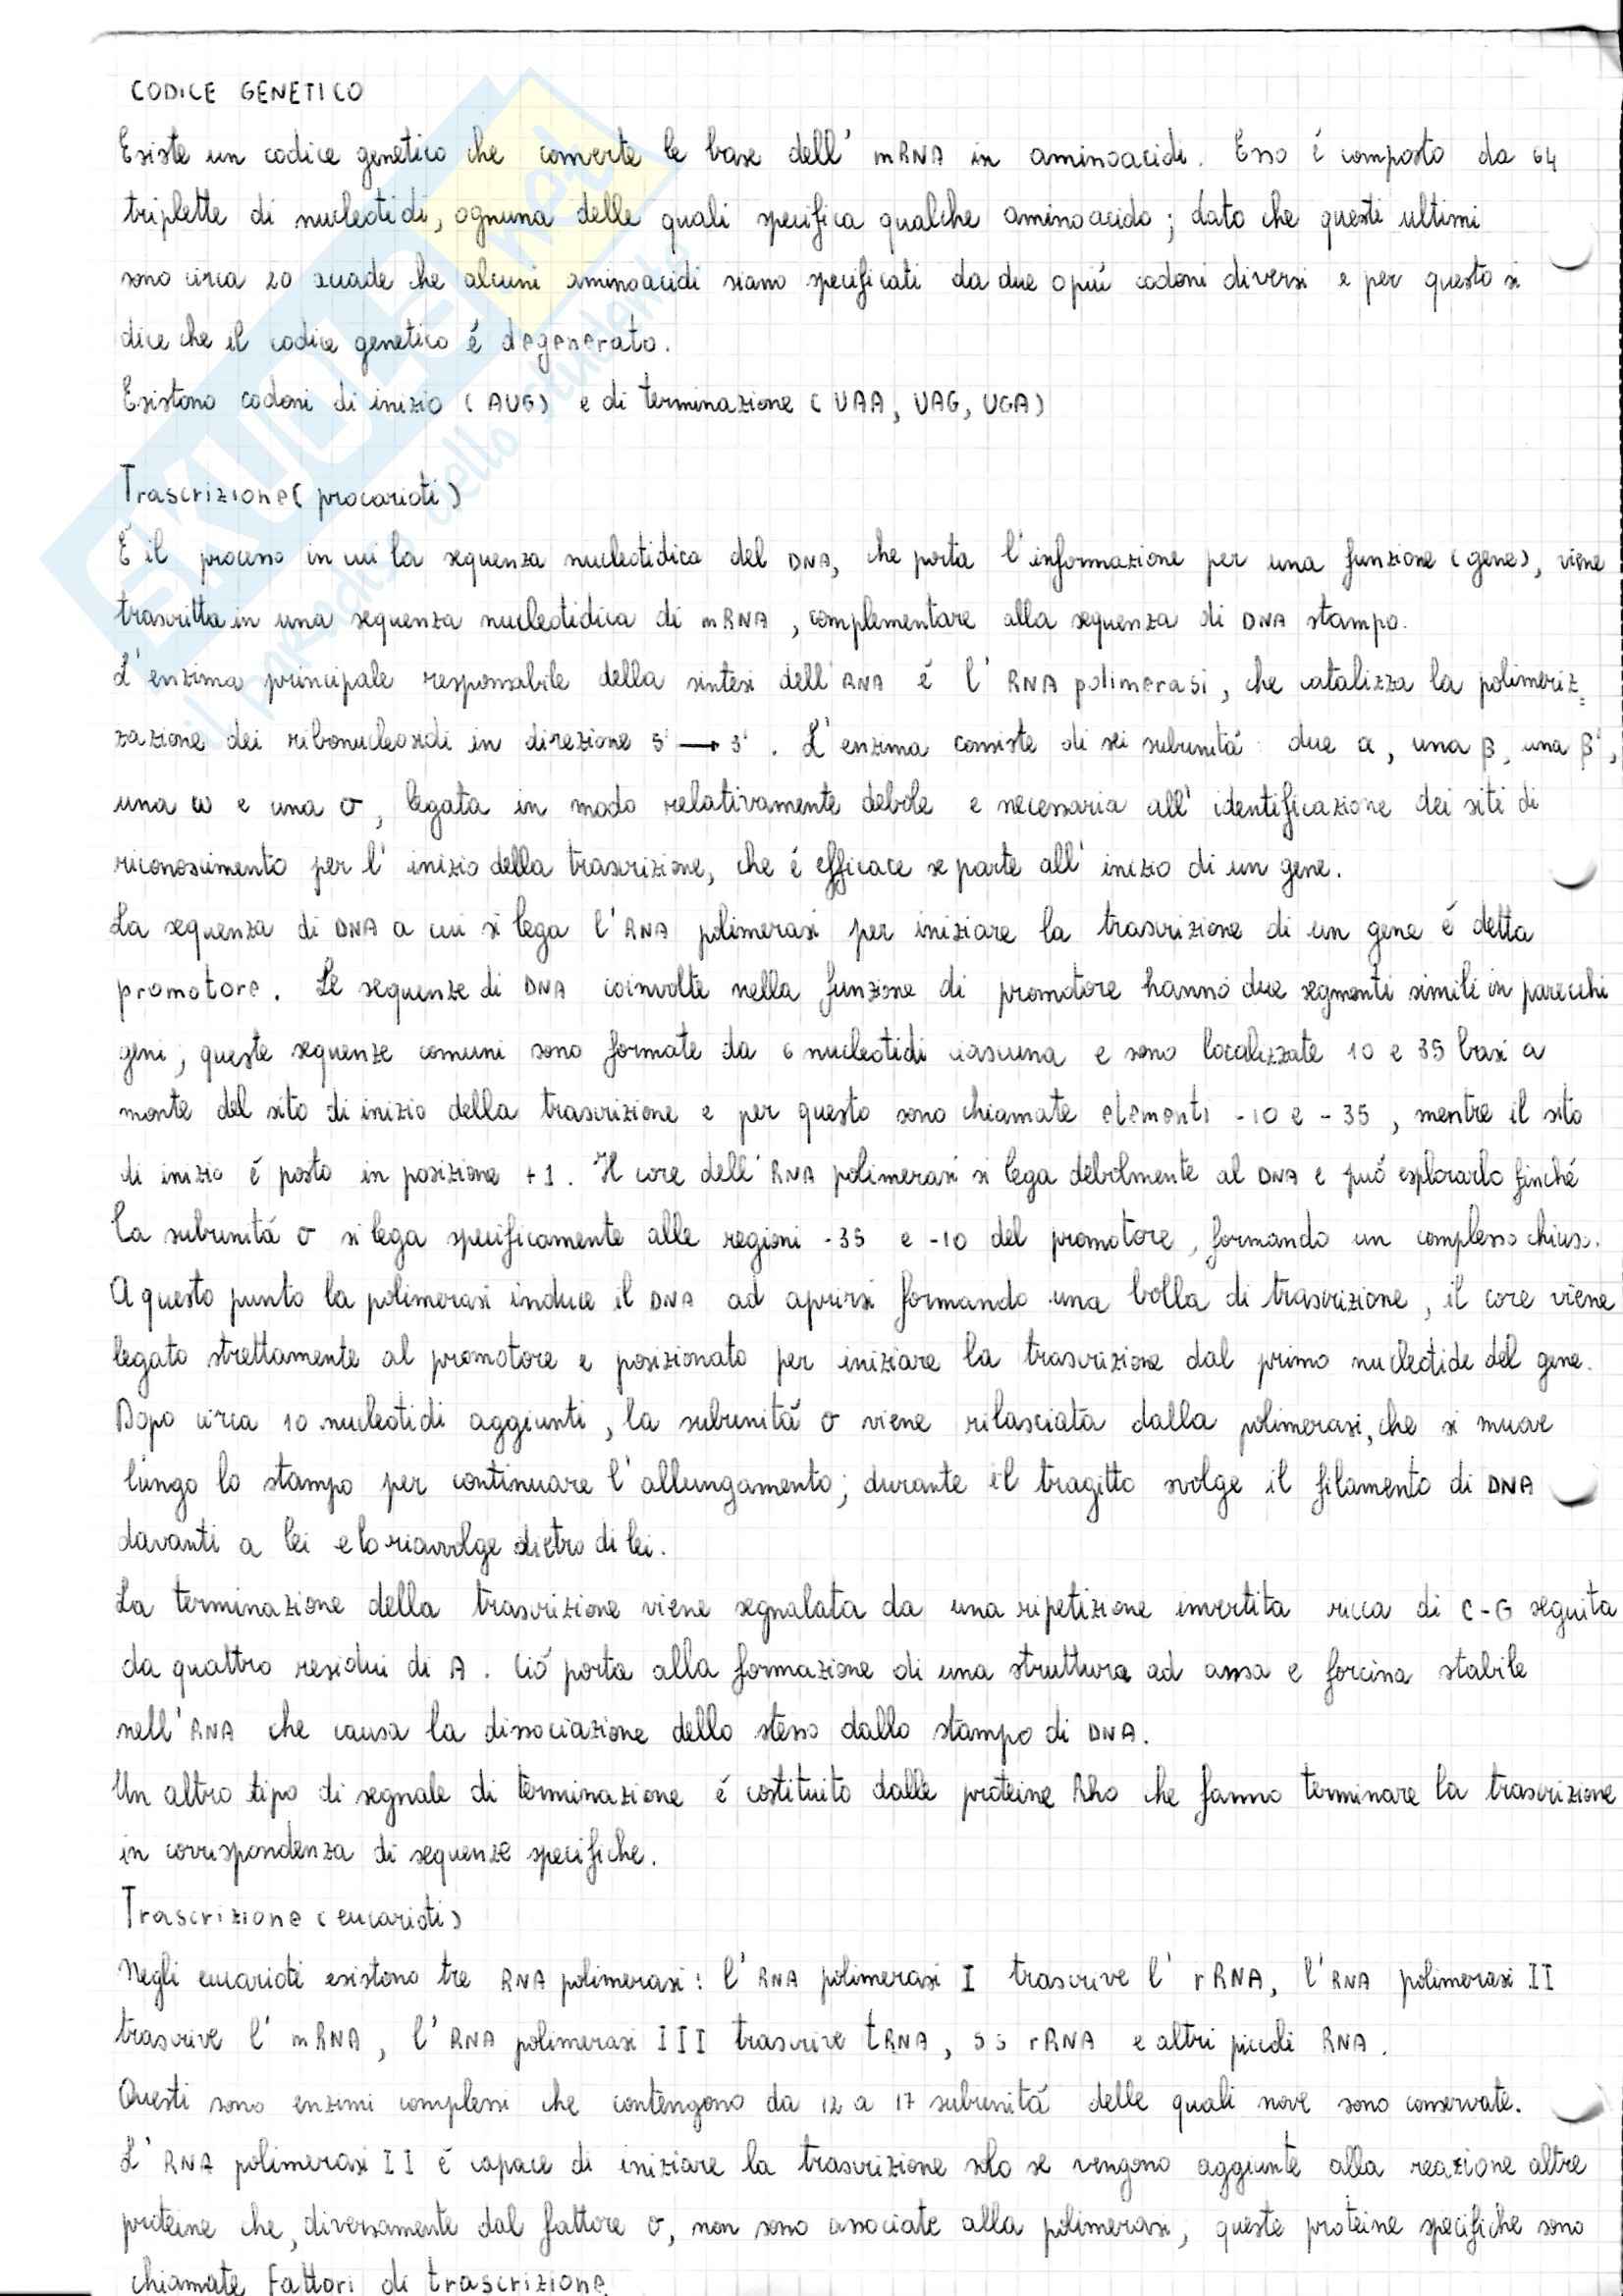 CODICE GENETICO
Esiste un codice genetico che converte le base dell' mRNA in aminoacidi. Esso é composto da 64
triplette di nucleotidi, ognuna delle quali specifica qualche aminoacido; dato che questi ultimi
sono circa 20 accade che alcuni aminoacidi siano specificati da due o piú codoni diversi e per questo si
dice che il codice genetico é degenerato.
Esistono codoni di inizio (AUG) e di terminazione (UAA, UAG, UGA)
Trascrizione (procarioti)
É il processo in cui la sequenza nucleotidica del DNA, che porta l'informazione per una funzione (gene), viene
trascritta in una sequenza nucleotidica di mRNA, complementare alla sequenza di DNA stampo.
L'enzima principale responsabile della sintesi dell'RNA é l' RNA polimerasi, che catalizza la polimeriz=
zazione dei ribonucleosidi in direzione 5' → 3'. L'enzima consiste di sei subunitá: due α, una β, una β',
una ω e una σ, legata in modo relativamente debole e necessaria all' identificazione dei siti di
riconoscimento per l' inizio della trascrizione, che é efficace se parte all' inizio di un gene.
La sequenza di DNA a cui si lega l'RNA polimerasi per iniziare la trascrizione di un gene é detta
promotore. Le sequenze di DNA coinvolte nella funzione di promotore hanno due segmenti simili in parecchi
geni; queste sequenze comuni sono formate da 6 nucleotidi ciascuna e sono localizzate 10 e 35 basi a
monte del sito di inizio della trascrizione e per questo sono chiamate elementi -10 e -35, mentre il sito
di inizio é posto in posizione +1. Il core dell'RNA polimerasi si lega debolmente al DNA e puó esplorarlo finché
la subunitá σ si lega specificamente alle regioni -35 e -10 del promotore, formando un complesso chiuso.
A questo punto la polimerasi induce il DNA ad aprirsi formando una bolla di trascrizione, il core viene
legato strettamente al promotore e posizionato per iniziare la trascrizione dal primo nucleotide del gene.
Dopo circa 10 nucleotidi aggiunti, la subunitá σ viene rilasciata dalla polimerasi, che si muove
lungo lo stampo per continuare l'allungamento; durante il tragitto svolge il filamento di DNA
davanti a lei e lo riavvolge dietro di lei.
La terminazione della trascrizione viene segnalata da una ripetizione invertita ricca di C-G seguita
da quattro residui di A. Ció porta alla formazione di una struttura ad ansa e forcina stabile
nell'RNA che causa la dissociazione dello stesso dallo stampo di DNA.
Un altro tipo di segnale di terminazione é costituito dalle proteine Rho che fanno terminare la trascrizione
in corrispondenza di sequenze specifiche.
Trascrizione (eucarioti)
Negli eucarioti esistono tre RNA polimerasi: l'RNA polimerasi I trascrive l' rRNA, l'RNA polimerasi II
trascrive l' mRNA, l'RNA polimerasi III trascrive tRNA, 5S rRNA e altri piccoli RNA.
Questi sono enzimi complessi che contengono da 12 a 17 subunitá delle quali nove sono conservate.
L' RNA polimerasi II é capace di iniziare la trascrizione solo se vengono aggiunte alla reazione altre
proteine che, diversamente dal fattore σ, non sono associate alla polimerasi; queste proteine specifiche sono
chiamate fattori di trascrizione
SKUOLA.net
il paradiso dello studente